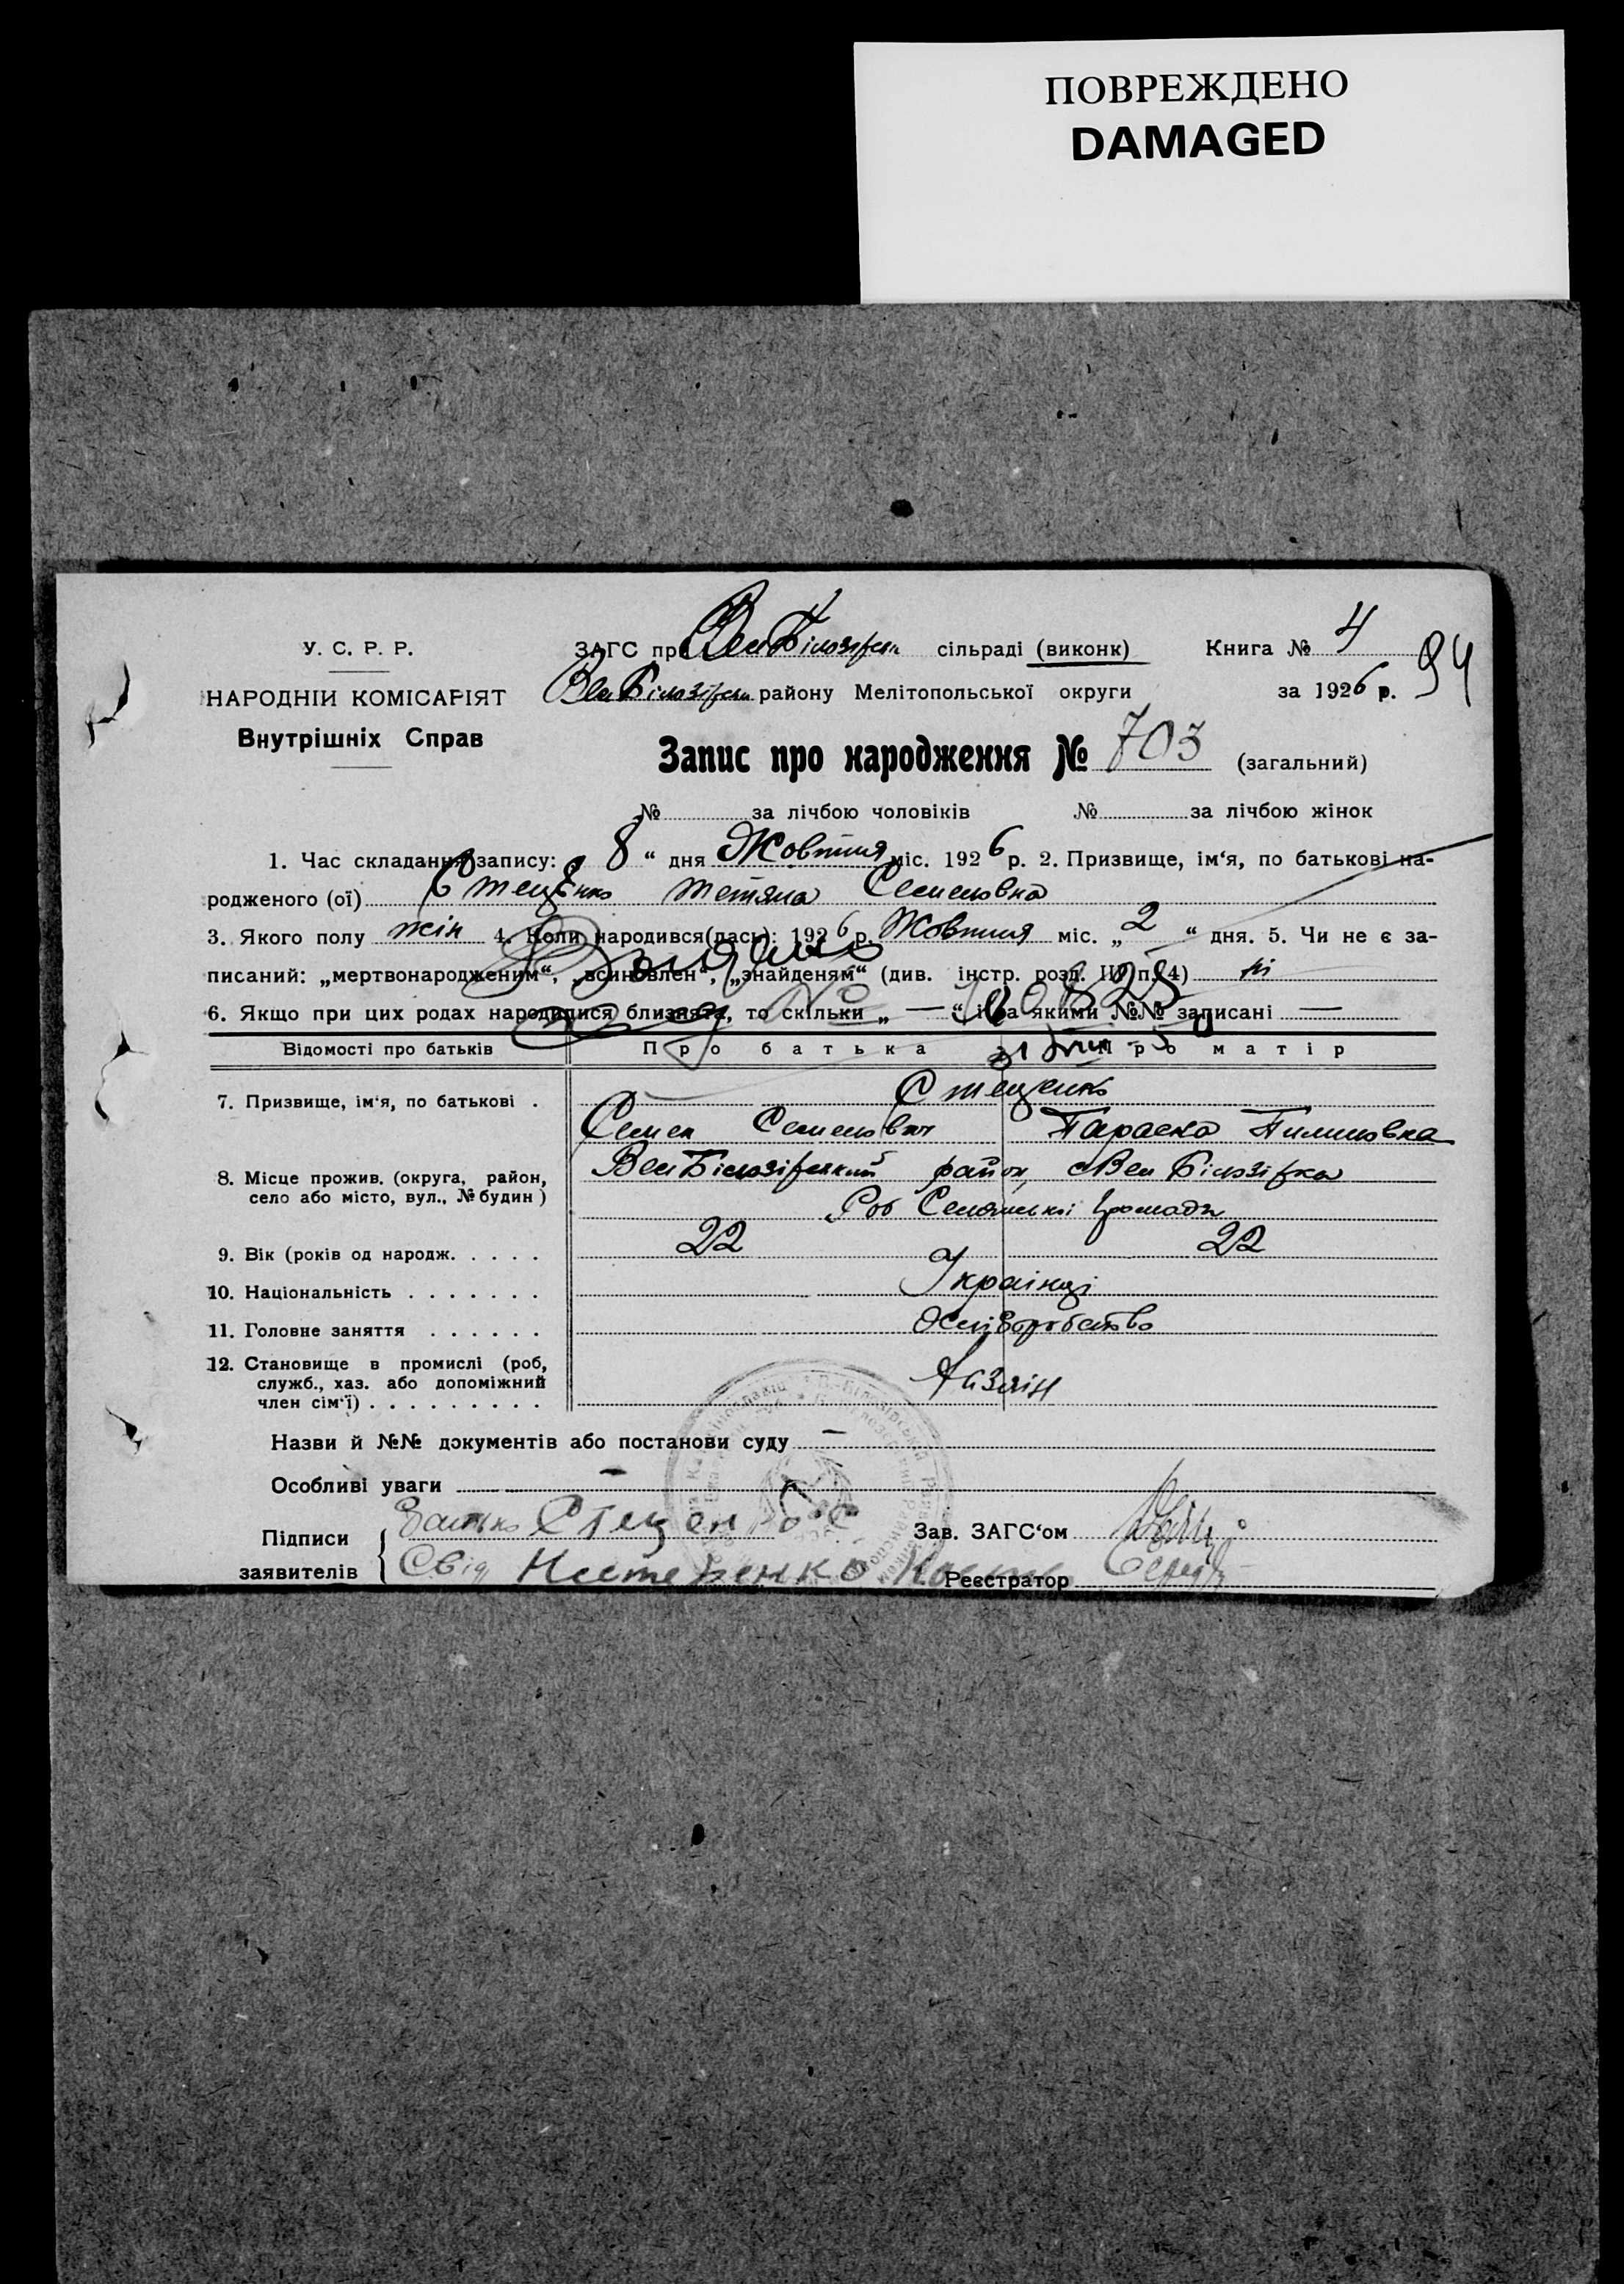 ПОВРЕЖДЕНО
DAMAGED
У. С. Р. Р.
НАРОДНІЙ КОМІСАРІЯТ
Внутрішніх Справ
ЗАГС при Вел Білозірськ сільраді (виконк) Книга № 4
94
Вел Білозірськ району Мелітопольської округи за 1926 р.
Запис про народження № 703 (загальний)
№ за лічбою чоловіків № за лічбою жінок
1. Час складання запису: „ 8 “ дня Жовтня міс. 1926 р. 2. Призвище, ім‘я, по батькові на-
родженого (ої) Стеценко Тетяна Семеновна
3. Якого полу жін 4. Коли народився(лась): 1926 р. Жовтня міс. „ 2 “ дня. 5. Чи не є за-
писаний: „мертвонародженим“, „всиновлен“, „знайденям“ (див. інстр. розд. III п. 4) ні
6. Якщо при цих родах народилися близнята, то скільки „ — “ і за якими №№ записані —
Відомості про батьків Про батька Про матір
7. Призвище, ім‘я, по батькові . Стеценко
Семен Семенович Параска Пилиповна
8. Місце прожив. (округа, район, село або місто, вул., № будин) ВелБілозірський район, с Вел Білозірка
Селянської громади
9. Вік (років од народж. . . . . 22 22
10. Національність . . . . . . . Українці
11. Головне заняття . . . . . . Хліборобство
12. Становище в промислі (роб, служб., хаз. або допоміжний член сім‘ї) . . . . . . . . . Хазяїн
Назви й №№ документів або постанови суду —
Особливі уваги —
Підписи заявителів { Батько Стецен
Зав. ЗАГС‘ом
Свід Нестеренко
Реєстратор